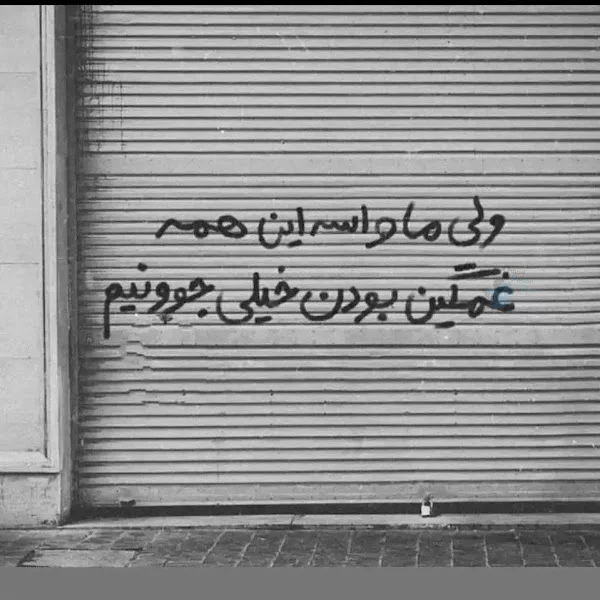 ولی ما واسه این همه
غمگین بودن خیلی جوونیم